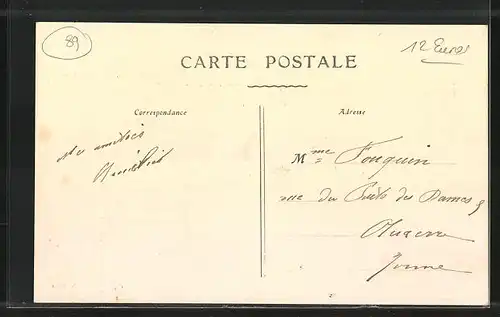 89
12 Euros
CARTE POSTALE
Correspondance
Adresse
amitiés
Mme Fouquin
rue du Puits des Dames
Auxerre
Yonne